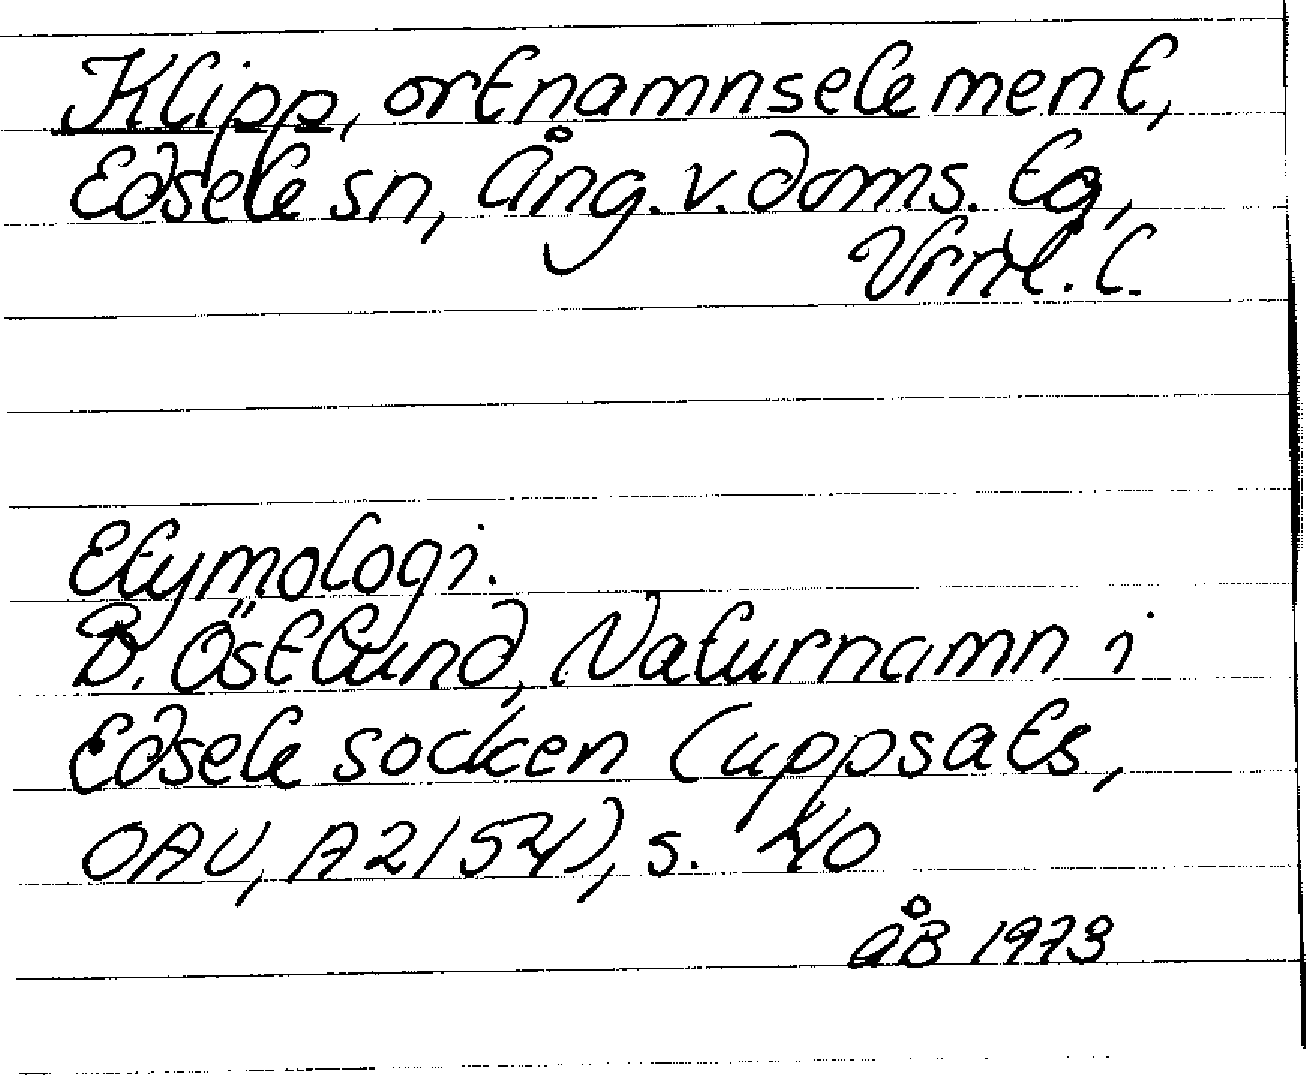 Klipp, ortnamnselement,
Edsele sn, Ång. v. doms. tg,
Vrnl. l.
Etymologi.
B. Östlund, Naturnamn i
Edsele socken (uppsats,
OAU, A2154), s. 40
ÅB 1973